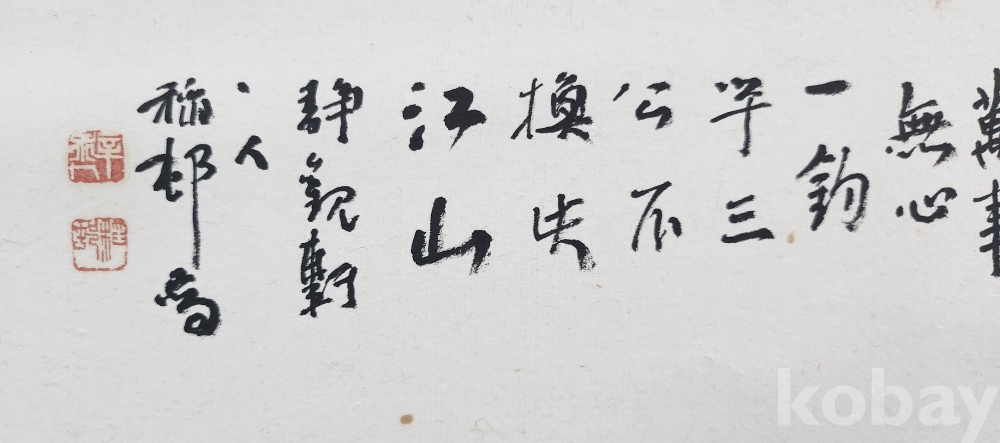 萬事
無心
一釣
竿三
公不
換此
江山
靜觀軒
丶人
稻邨
kobay